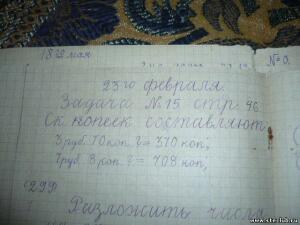 18 мая
№ 0.
23го февраля.
Задача № 15 стр 46.
Ск копеек составляют
3 руб. 70 коп. ? = 370 коп,
7 руб. 8 коп. ? = 708 коп;
Разложить числа
www.sterlib.ru